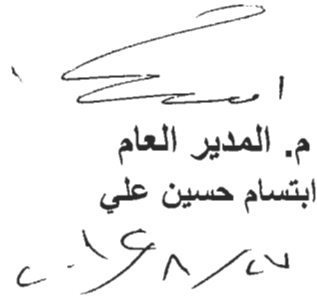 م. المدير العام
ابتسام حسين علي
٢٠١٤/٨/٢٧